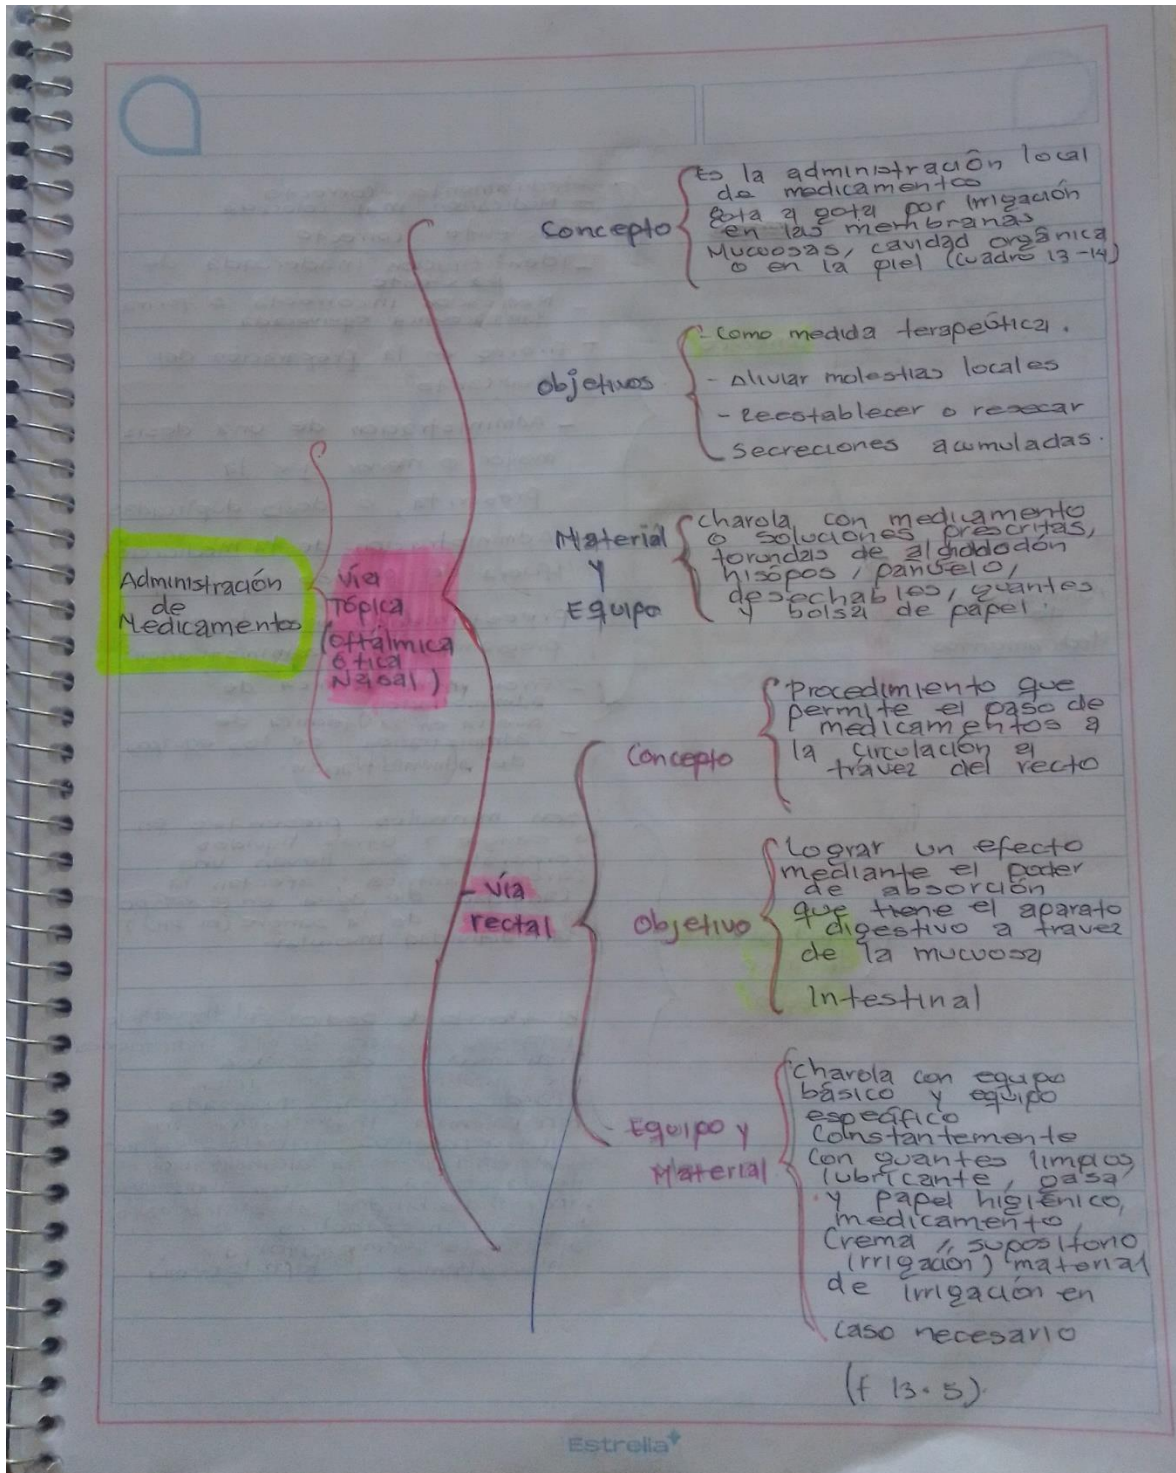 Administración
de
Medicamentos
Vía
Tópica
(oftálmica
ótica
Nasal)
Concepto
Es la administración local
de medicamentos
gota a gota por irrigación
en las membranas
Mucuosas, cavidad orgánica
o en la piel (Cuadro 13-14)
Objetivos
- Como medida terapeútica.
- Aliviar molestias locales
- Reestablecer o resecar
secreciones acumuladas.
Material
y
Equipo
charola, con medicamento
o soluciones prescritas,
torundas de algododón
hisópos, pañuelo,
desechables, guantes
y bolsa de papel.
- Vía
rectal
Concepto
Procedimiento que
permite el paso de
medicamentos a
la circulación a
travez del recto
Objetivo
Lograr un efecto
mediante el poder
de absorción
que tiene el aparato
digestivo a travez
de la mucuosa
Intestinal
- Equipo y
Material
Charola con equipo
básico y equipo
específico
Constantemente
con guantes limpios,
lubricante, gasa
y papel higiénico,
medicamento,
Crema, supositorio
irrigación) material
de irrigación en
caso necesario
(f 13.5).
Estrella